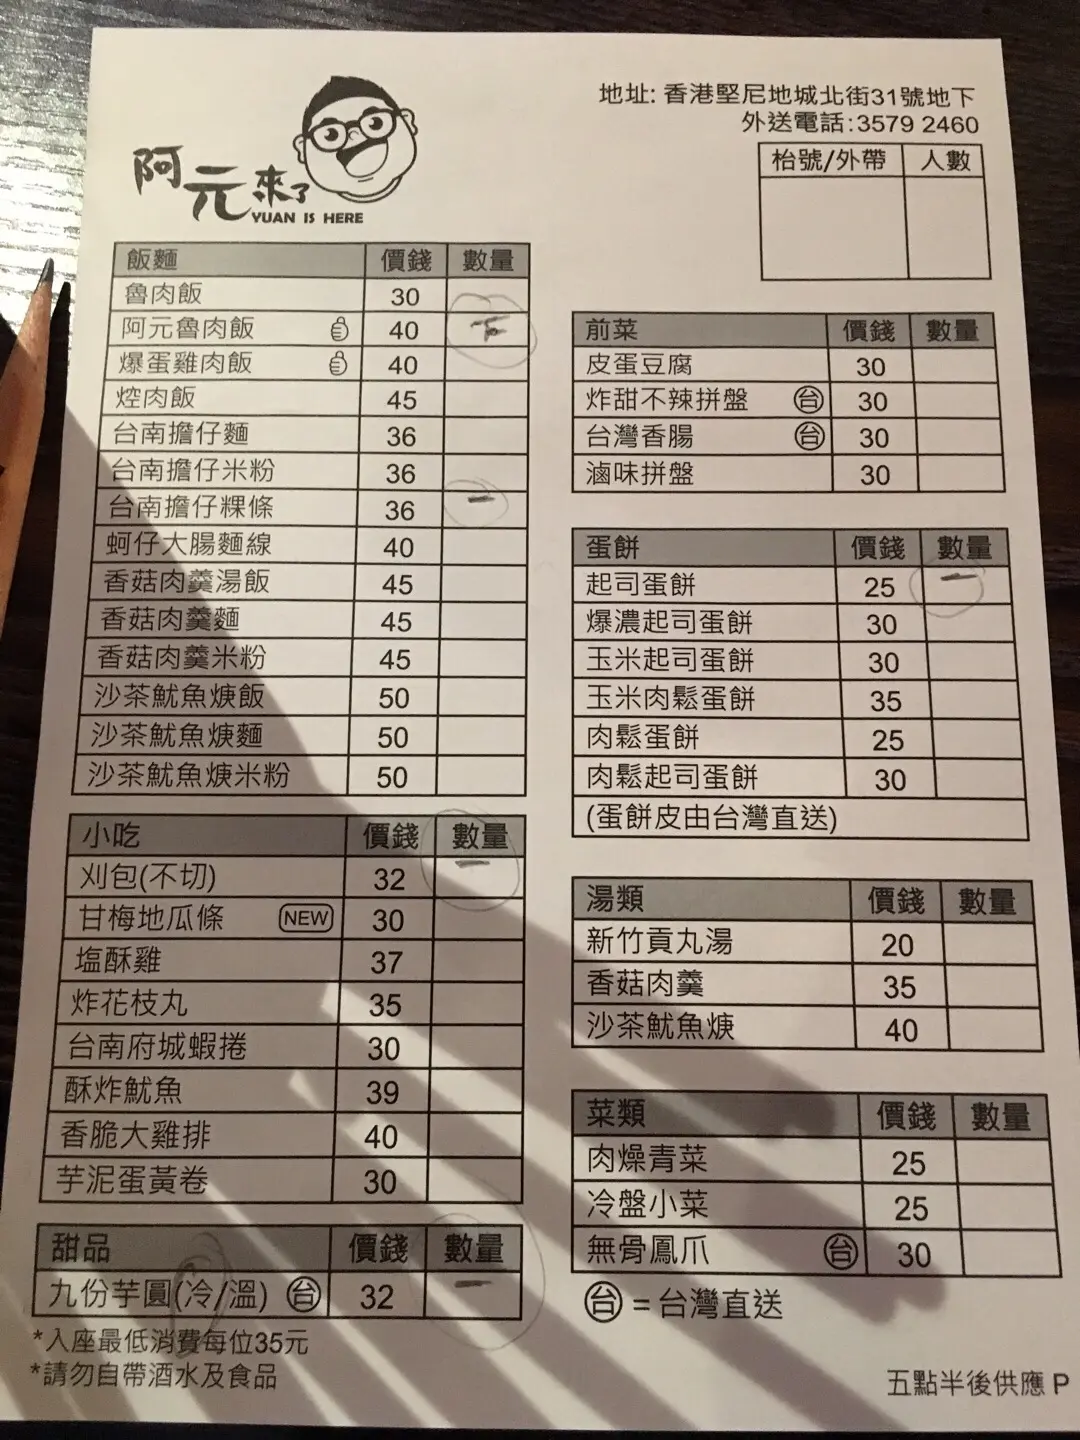 地址: 香港堅尼地城北街31號地下
外送電話:3579 2460
枱號/外帶 人數
阿元來了
YUAN IS HERE
飯麵 價錢 數量
魯肉飯 30
阿元魯肉飯 40 下
爆蛋雞肉飯 40
焢肉飯 45
台南擔仔麵 36
台南擔仔米粉 36
台南擔仔粿條 36 一
蚵仔大腸麵線 40
香菇肉羹湯飯 45
香菇肉羹麵 45
香菇肉羹米粉 45
沙茶魷魚焿飯 50
沙茶魷魚焿麵 50
沙茶魷魚焿米粉 50
小吃 價錢 數量
刈包(不切) 32 一
甘梅地瓜條 NEW 30
塩酥雞 37
炸花枝丸 35
台南府城蝦捲 30
酥炸魷魚 39
香脆大雞排 40
芋泥蛋黃卷 30
甜品 價錢 數量
九份芋圓(冷/溫) 台 32 一
*入座最低消費每位35元
*請勿自帶酒水及食品
前菜 價錢 數量
皮蛋豆腐 30
炸甜不辣拼盤 台 30
台灣香腸 台 30
滷味拼盤 30
蛋餅 價錢 數量
起司蛋餅 25 一
爆濃起司蛋餅 30
玉米起司蛋餅 30
玉米肉鬆蛋餅 35
肉鬆蛋餅 25
肉鬆起司蛋餅 30
(蛋餅皮由台灣直送)
湯類 價錢 數量
新竹貢丸湯 20
香菇肉羹 35
沙茶魷魚焿 40
菜類 價錢 數量
肉燥青菜 25
冷盤小菜 25
無骨鳳爪 台 30
台 = 台灣直送
五點半後供應 P